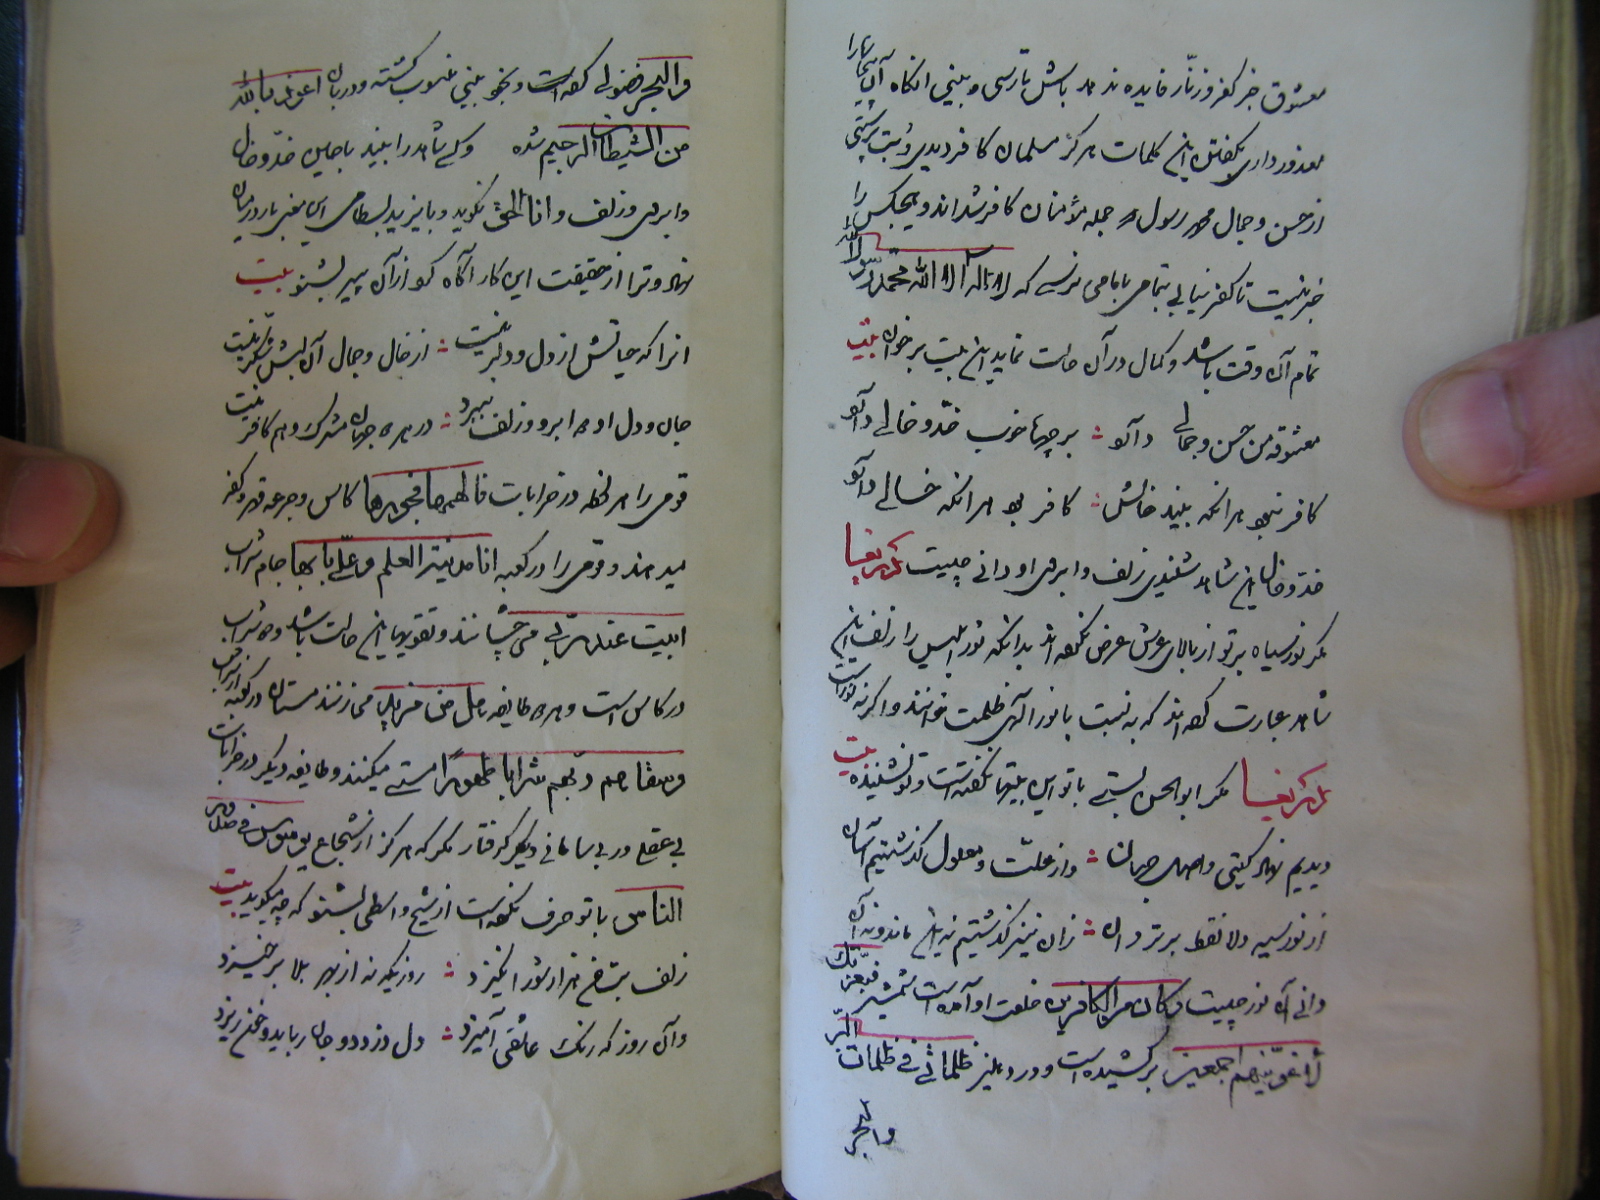 معشوق جز کفر و زنّار فایده ندهد باش تا رسی و بینی انکاه آن بیچاره را
معذور داری بگفتن این کلمات هرگز مسلمان کافر دیدی و بت پرستی
از حسن و جمال محمد رسول الله جمله مؤمنان کافر شده‌اند و هیچکس را
خبر نیست تا کفر نیابی بتمامی بایمان نرسی که لا اله الا الله محمد رسول الله
تمام آن وقت باشد و کمال در آن حالت نماید این بیت برخوان بیت
معشوقه من حسن و جمالی دارد او ؞ بر چهرها خوب خدّ و خالی دارد او
کافر شود هر انکه بیند خالش ؞ کافر بود هر انکه خالی دارد او
خدّ و خال این شاهد شنیدی زلف و ابروی او دانی چیست
مگر نور سیاه بر تو از بالای عرش عرض نکرده‌اند بدانکه نور ابلیس را زلف این
شاهد عبارت کرده‌اند که به نسبت با نور الهی ظلمت خوانند و اگرنه نور است
مگر ابوالحسن بستی با تو این بیتها نگفته است و تو نشنیده بیت
دیدیم نهاد گیتی و اصل جهان ؞ و از علّت و معلول گذشتیم آسان
از نور سیه ولا نقط برتر دان ؞ زان نیز گذشتیم نه این ماند و نه آن
دانی آن نور چیست وکان من الکافرین خلعت او آمده است شمشیر فبعزتک
لأغوینهم اجمعین برکشیده است و در دهلیز ظلمات فی ظلمات البرّ
والبحر
والبحر فضولی کرده است و بخود بینی منسوب گشته و دربان اعوذ بالله
من الشیطان الرجیم شده وکسی شاهد را بیند با چنین خدّ و خال
و ابروی و زلف و انا الحق نگوید و بایزید بسطامی این معنی بار در میان
نهاد و ترا از حقیقت این کار آگاه کو از آن پیر بشنو بیت
انرا که حیاتش از دل و دلبر نیست ؞ از خال و جمال آن لبش شکر نیست
جان و دل او مه ابرو و زلف ببرد ؞ در هر دو جهان مشرک و هم کافر نیست
قومی را هر لحظه در خرابات فالهمها فجورها کاس و جرعه قهر و کفر
میدهند و قومی را در کعبه انا مدینة العلم و علی بابها جام شراب
ابیت عند ربی می‌چشانند و تقویها این حالت باشد و هر دو شراب
در کاس است و هر دو طایفه هل من مزید می‌زنند مستان در کعبه از شراب
و سقاهم ربّهم شراباً طهوراً مستی میکنند و طایفه دیگر در خرابات
بی عقلی و بی سامانی دیگر گرفتار مگر که هرگز از شجاع یوسوس فی صدور
الناس با تو حرف نکرده است از شیخ واسطی بشنو که چه میگوید بیت
زلف بت من هزار شور انگیزد ؞ روزیکه نه از بهر بلا برخیزد
و آن روز که رنگ عاشقی آمیزد ؞ دل دزدد و جان رباید و خون ریزد